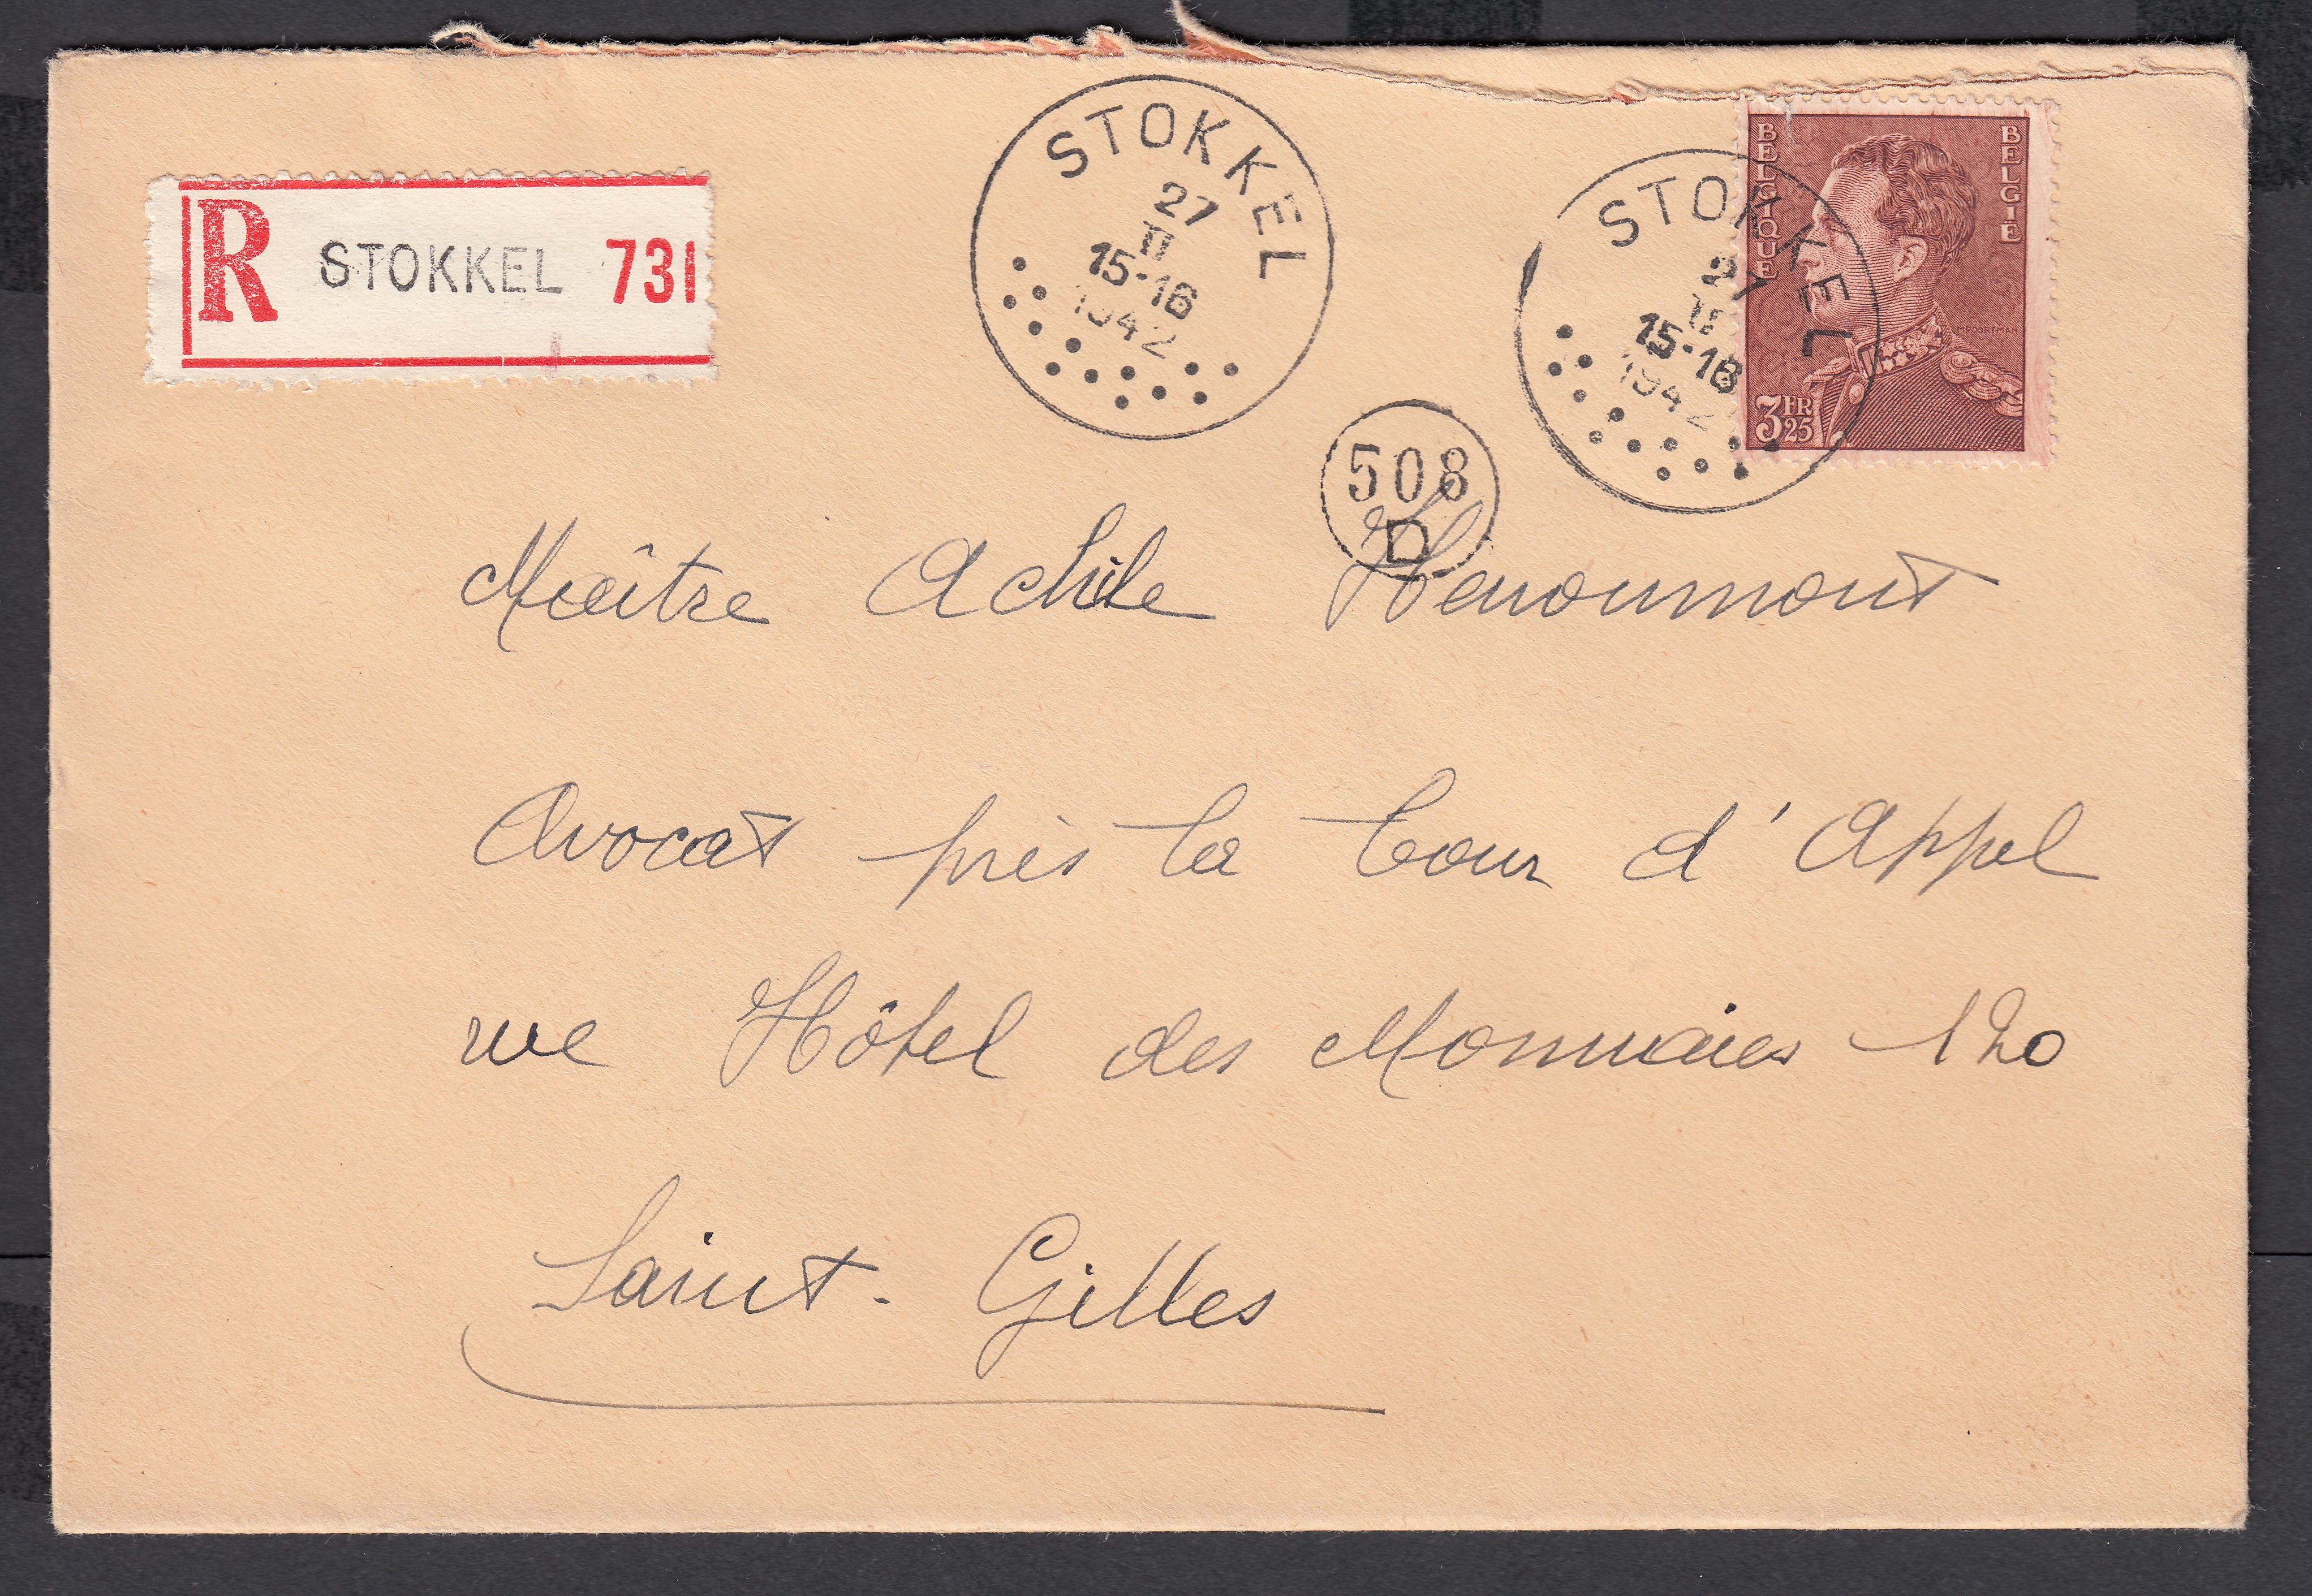 R STOKKEL 731
STOKKEL
27
II
15-16
1942
STOKKEL
27
II
15-16
1942
BELGIQUE
BELGIË
M.POORTMAN
3 FR 25
508
D
Maître Achile Henoumont
Avocat près la Cour d'Appel
rue Hôtel des Monnaies 120
Saint-Gilles